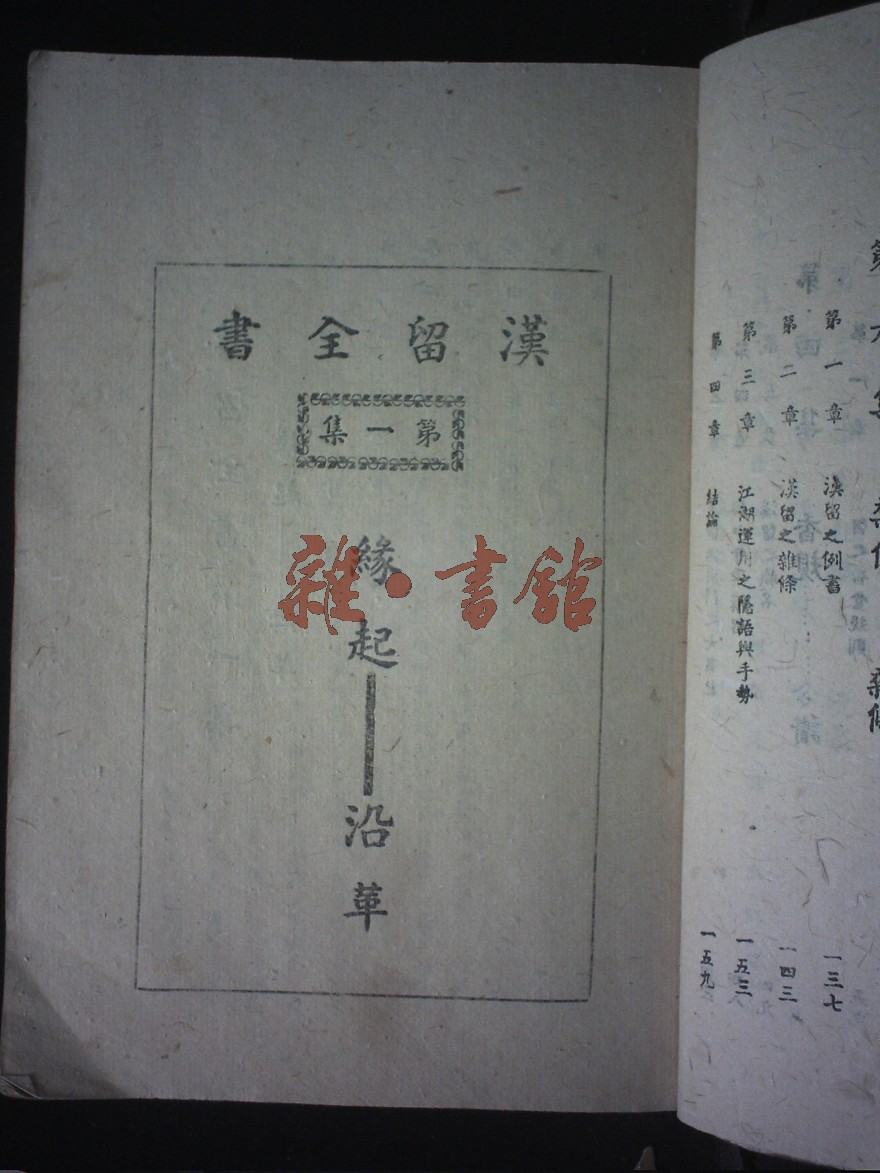 漢留全書
第一集
緣起——沿革
雜·書館
第六集
第一章 漢留之例書 一三七
第二章 漢留之雜條 一四三
第三章 江湖運用之隱語與手勢 一五三
第四章 結論 一五九